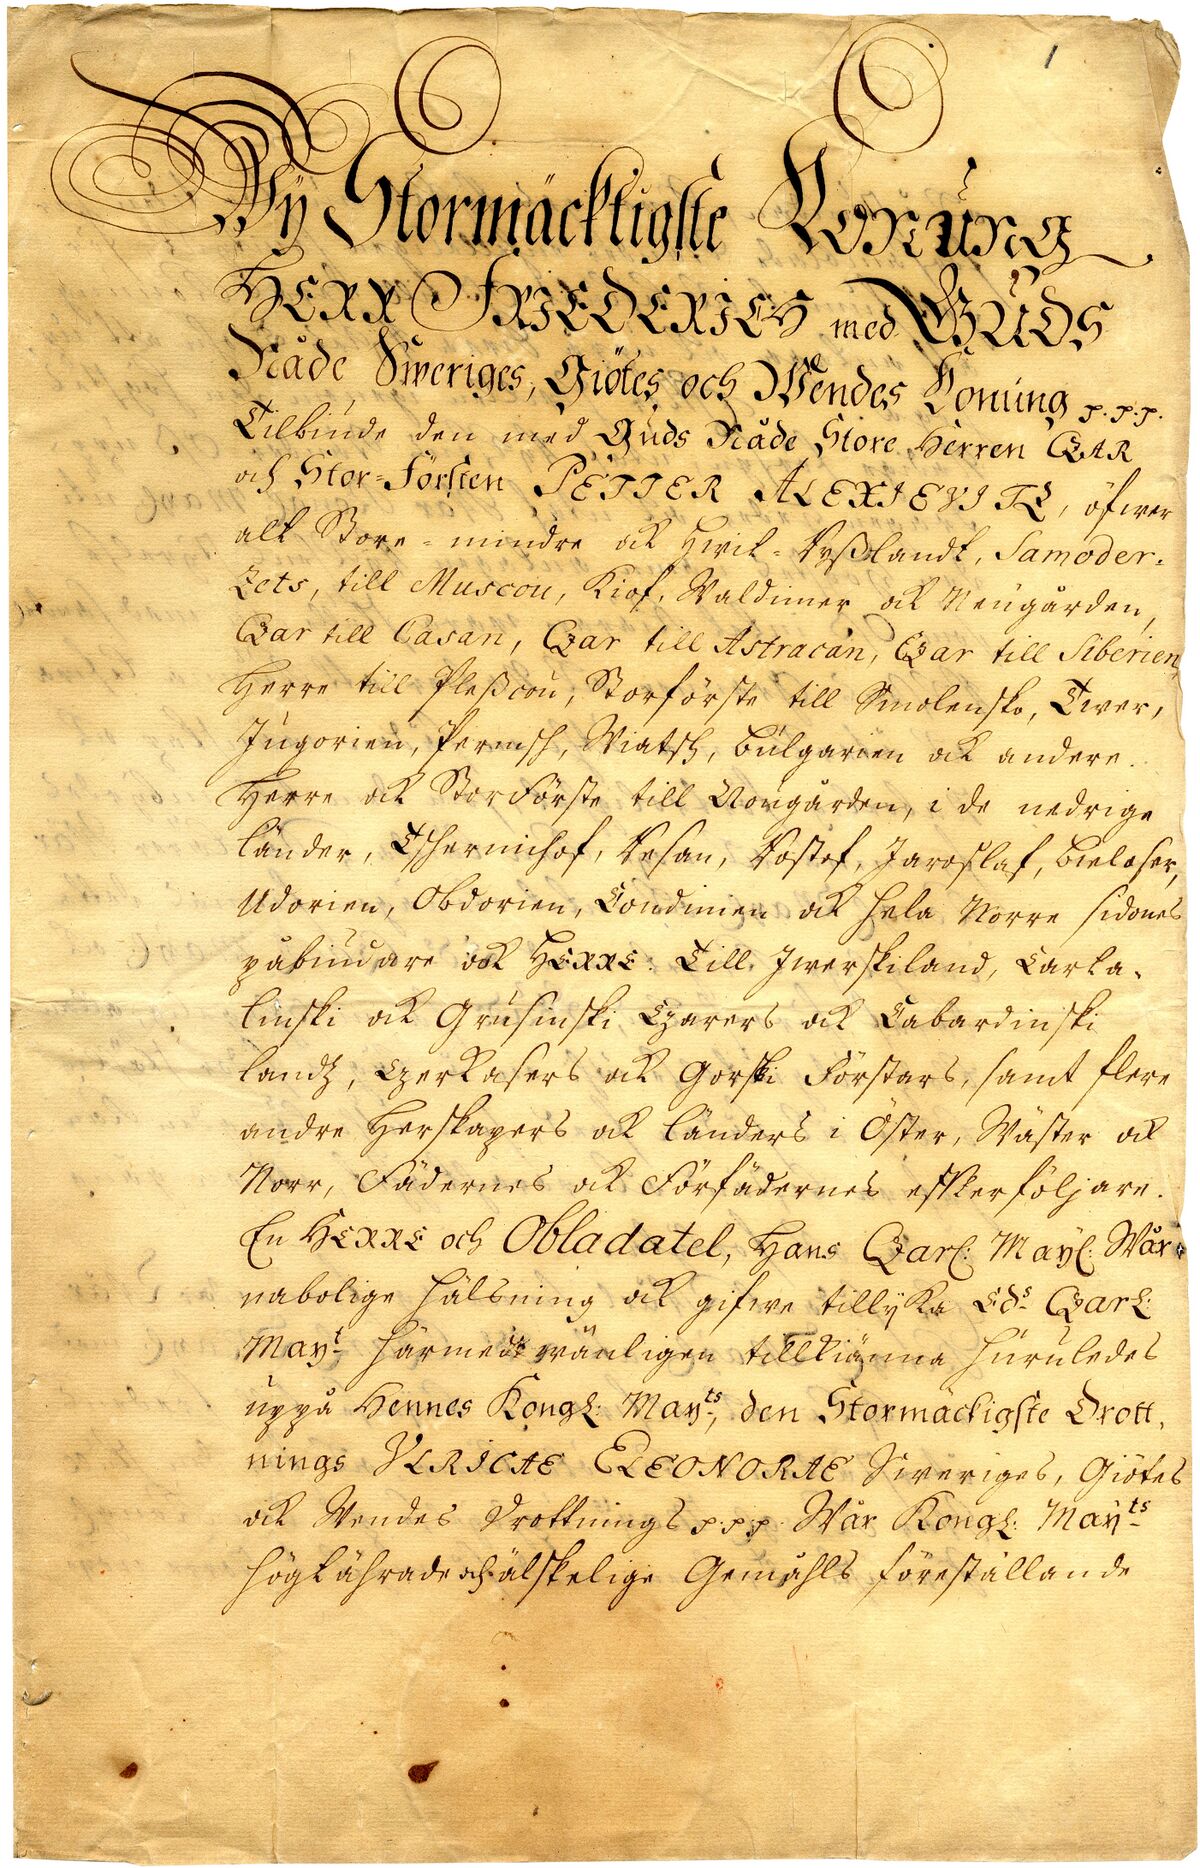 1
Wÿ Stormäcktigste Konung
HERR FRIEDERICH med GUDS
Nåde Sweriges, Giötes och Wendes Konung p.p.p.
Tilbinde den med Guds Nåde Store Herren CZAR
och Stor-Försten PETTER ALEXIEVITZ, öfwer
alt Store- mindre och Hwit-Ryßlandt, Samoder-
Zets, till Muscou, Kiof, Waldimer och Neugården,
Czar till Casan, Czar till Astracan, Czar till Siberien,
Herre till Pleßcou, Storförste till Smolensko, Twer,
Jugorien, Permsk, Wiatsk, Bulgarien och andere.
Herre och StorFörste till Novgården, i de nedrige
länder, Tschernichof, Resan, Rostof, Jaroslaf, Bieloser,
Udorien, Obdorien, Condinien och hela Norre sidones
påbiudare och HERRE: Till Jwerskiland, Carta-
linski och Grusinski Czarers och Cabardinski
landz, Czerkasers och Gorski Förstars, samt flere
andre Herskapers och länders i Öster, Wäster och
Norr, Fädernes och Förfädernes efterföljare.
En HERRE och Obladatel, Hans Czarl: Mayt: Wår
nabolige hälsning och gifwe tillyka Eds Czarl:
Mayt härmed wänligen tillkiänna huruledes
uppå Hennes Kongl: Mayts, den Stormäcktigste Drott-
nings ULRICAE ELEONORAE Sweriges, Giötes
och Wendes Drottnings p.p.p. Wår Kongl: Mayts
högtährade och älskelige Gemåhls föreställande